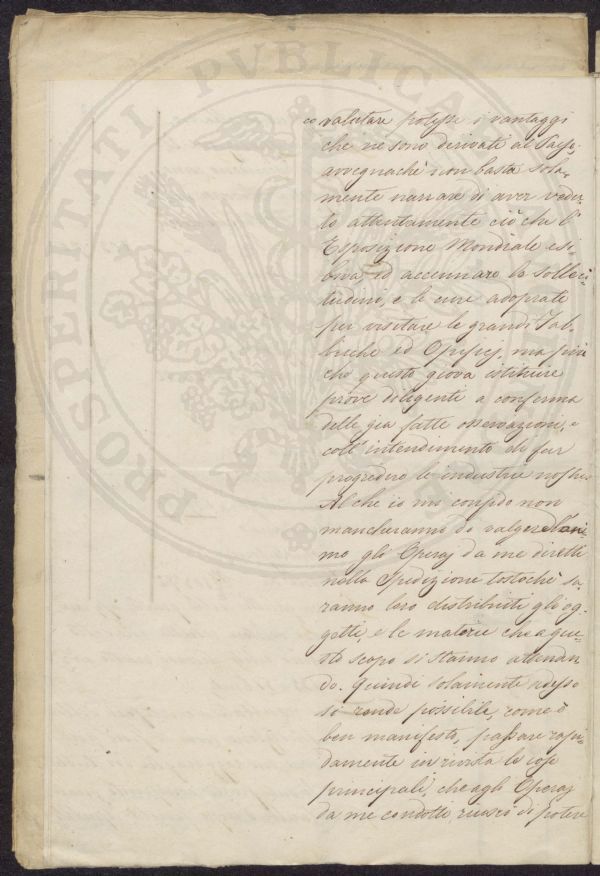 PROSPERITATI PVBLICAE
valutare potesse i vantaggi
che ne sono derivati al Paese,
avvegnachè non basta sola-
mente narrare di aver vedu-
to attentamente ciò che l'
Esposizione Mondiale esi-
biva, ed accennare la solleci-
tudini, e le cure adoprate
per visitare le grandi Fab-
briche ed Opificj, ma più
che questo giova istituire
prove diligenti a conferma
delle già fatte osservazioni, e
coll'intendimento di far
progredire le industrie nostre
Al che io mi confido non
mancheranno di volgere l'ani-
mo gli Operaj da me diretti
nella Spedizione tostochè sa-
ranno loro distribuiti gli og-
getti, e le materie che a que-
sto scopo si stanno attenden-
do. Quindi solamente adesso
si rende possibile, come è
ben manifesto, passare rapi-
damente in rivista le cose
principali, che agli Operaj
da me condotti, riuscì di potere